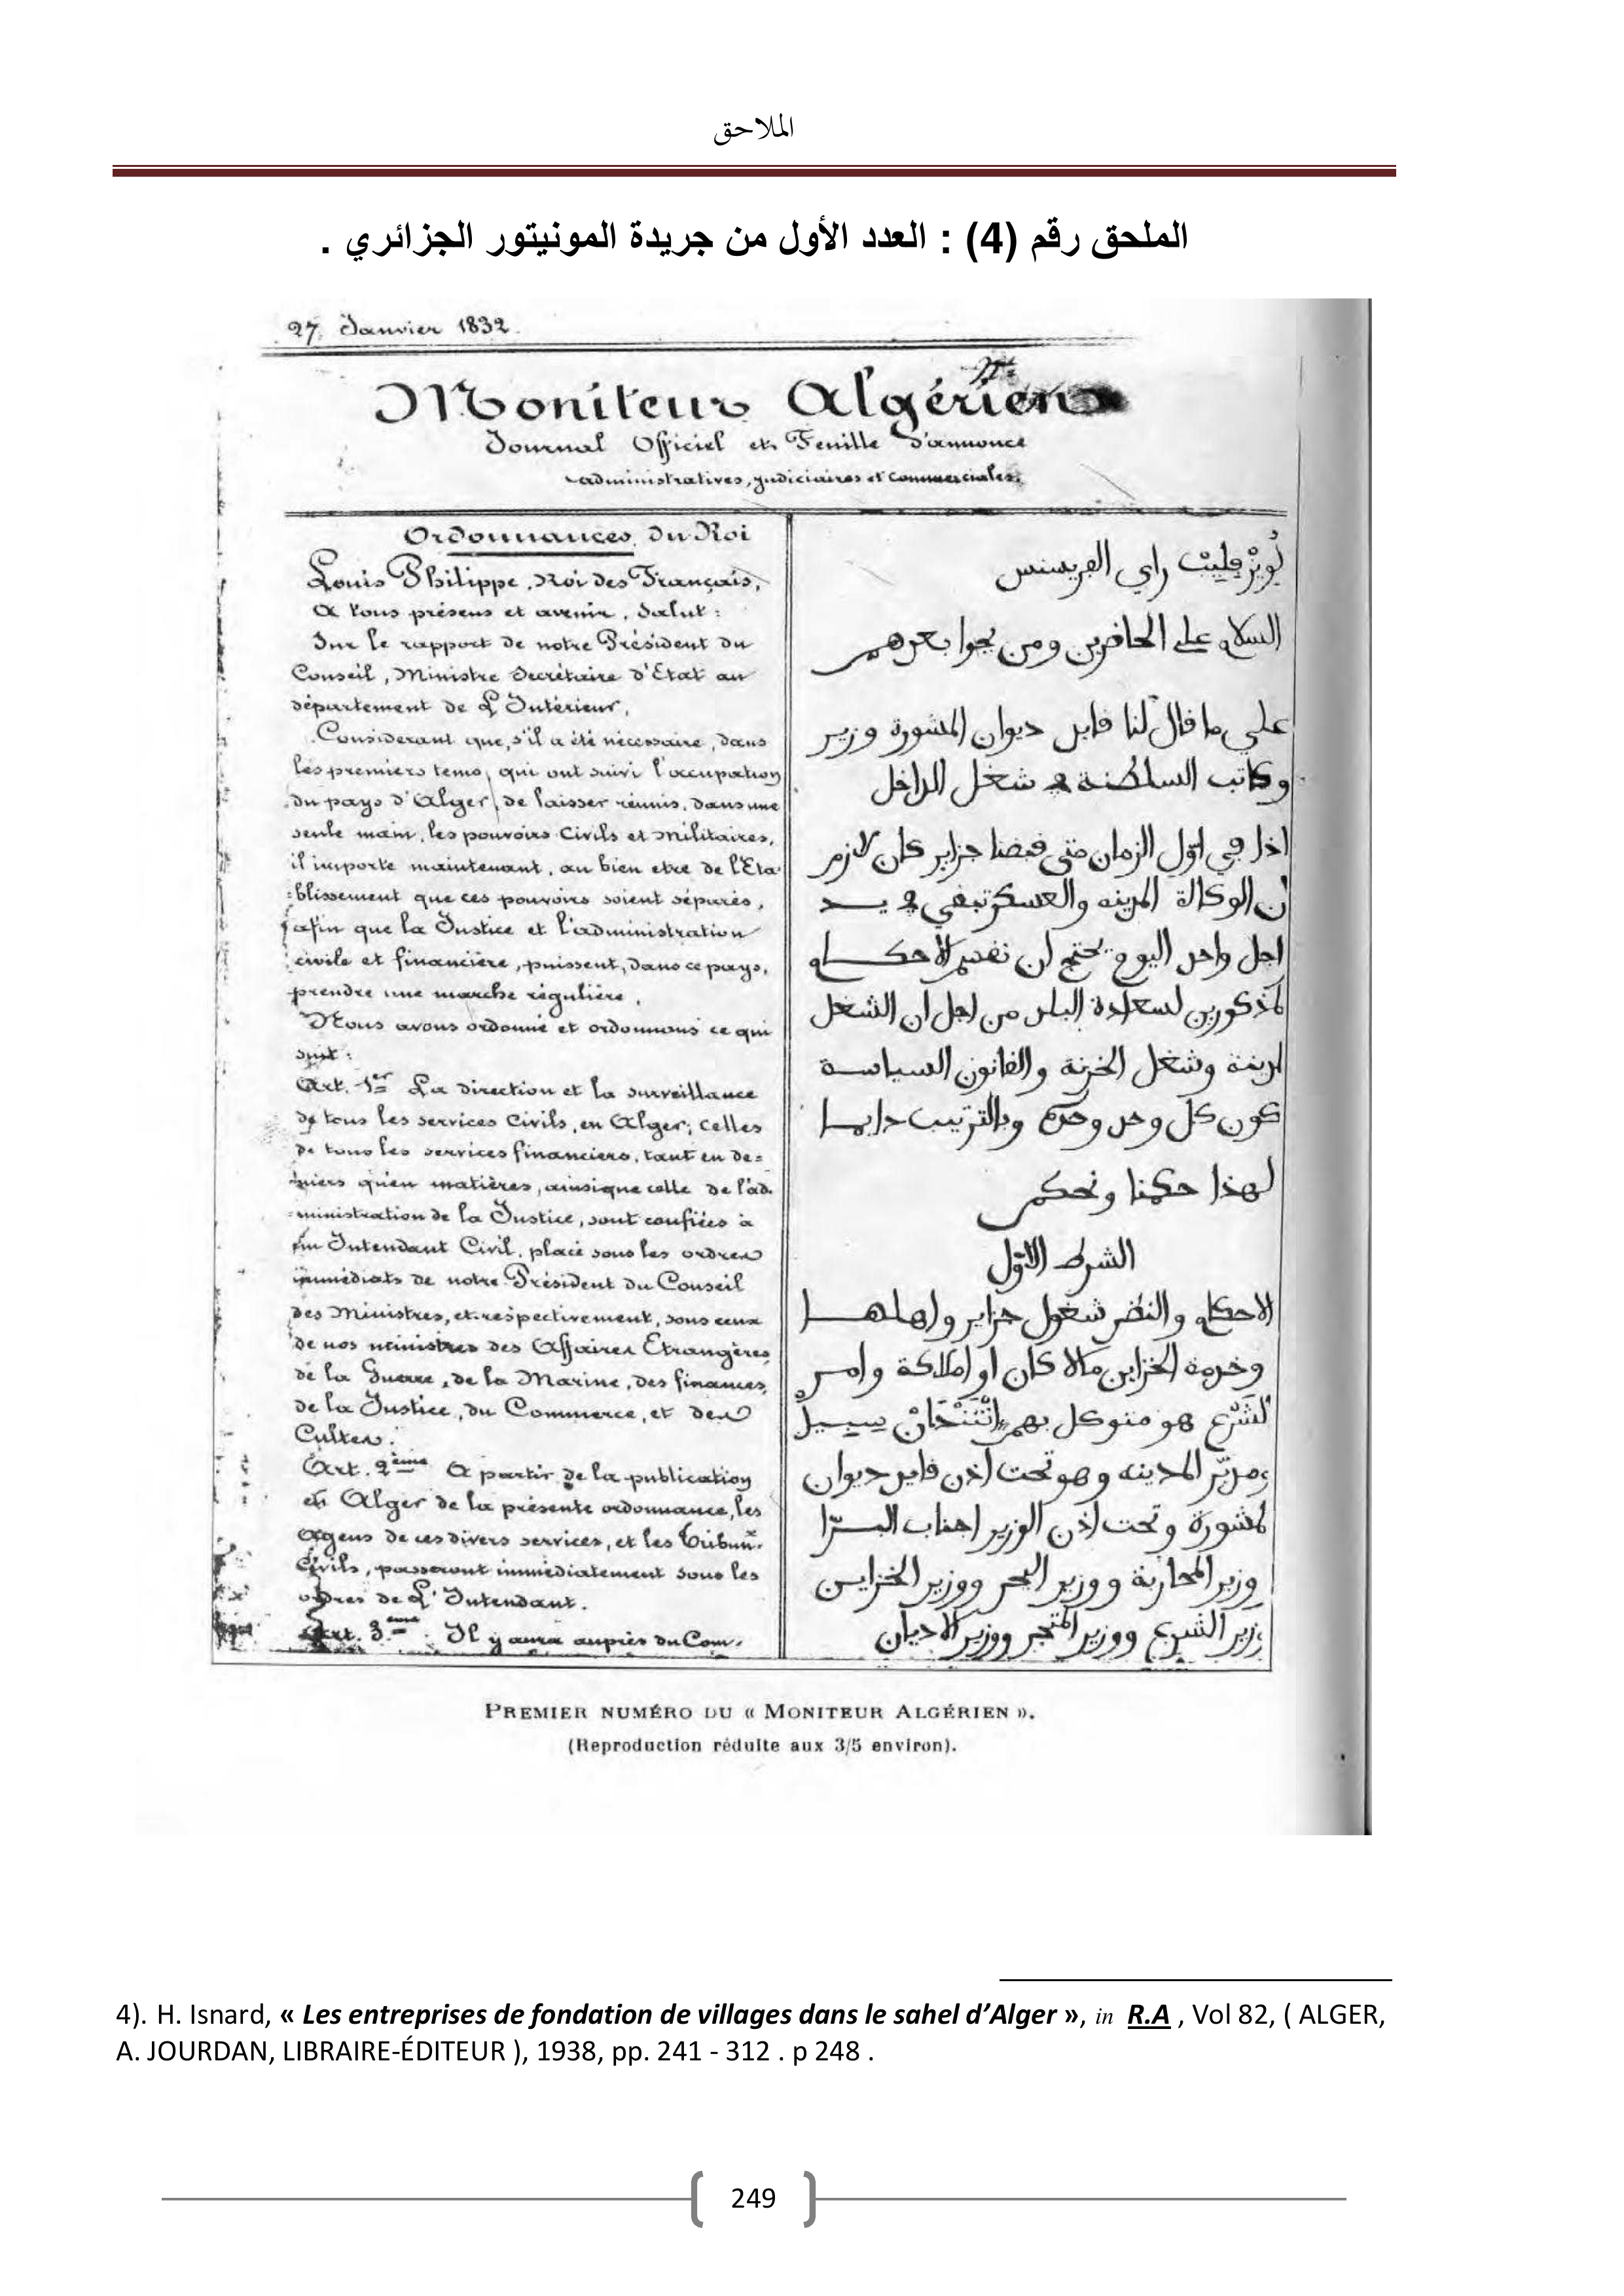 الملاحق
الملحق رقم (4) : العدد الأول من جريدة المونيتور الجزائري .
27 Janvier 1832.
Moniteur Algérien
Journal Officiel et Feuille d'annonce
administratives, judiciaires et commerciales.
Ordonnances du Roi
Louis Philippe, Roi des Français,
A tous présens et avenir, Salut :
Sur le rapport de notre Président du
Conseil, Ministre Secrétaire d'Etat au
département de L'Intérieur,
Considerant que, s'il a été nécessaire, dans
les premiers tems, qui ont suivi l'occupation
du pays d'Alger, de laisser réunis, dans une
seule main, les pouvoirs Civils et Militaires,
il importe maintenant, au bien etre de l'Eta-
blissement que ces pouvoirs soient séparés,
afin que la Justice et l'administration
civile et financière, puissent, dans ce pays,
prendre une marche régulière,
Nous avons ordonné et ordonnons ce qui
suit :
Art. 1er La direction et la surveillance
de tous les services Civils, en Alger; celles
de tous les services financiers, tant en de=
niers qu'en matières, ainsi que celle de l'ad-
ministration de la Justice, sont confiées à
un Intendant Civil, placé sous les ordres
immédiats de notre Président du Conseil
des Ministres, et respectivement, sous ceux
de nos ministres des Affaires Etrangères,
de la Guerre, de la Marine, des finances,
de la Justice, du Commerce, et des
Cultes.
Art. 2ème A partir de la publication
en Alger de la présente ordonnance, les
Agens de ces divers services, et les Tribunx
Civils, passeront immédiatement sous les
ordres de L'Intendant.
Art. 3ème. Il y aura auprès du Com-
لُويزْ فِلِيبْ راي الفرنسس
السلام على الحاضرين ومن يجوا بعدهم
على ما قال لنا قايد ديوان المشورة وزير
وكاتب السلطنة في شغل الداخل
اذا في اول الزمان متى قبضنا جزاير كان لازم
ان الوكالة المدينه والعسكر تبقي في يد
اجل واحد اليوم يحتج ان نقسم الاحكام
لمذكورين لسعادة البلد من اجل ان الشغل
لمدينة وشغل الخزنة والقانون السياسة
كون كل وحد وحده وبالترتيب دايما
لهذا حكمنا ونحكم
الشرط الاول
الاحكام والنظر شغول جزاير واهلها
وخدمة الخزاين مالا كان او املاكة وامر
لشرع هو متوكل بهم اتنتدان سيبيل
ومدبّر المدينه وهو تحت اذن قايد ديوان
لمشورة وتحت اذن الوزير اجناب البرّا
وزير المحاربة ووزير البحر ووزير الخزاين
وزير الشرع ووزير المتجر ووزير الاديان
PREMIER NUMÉRO DU « MONITEUR ALGÉRIEN ».
(Reproduction réduite aux 3/5 environ).
4). H. Isnard, « Les entreprises de fondation de villages dans le sahel d'Alger », in R.A , Vol 82, ( ALGER,
A. JOURDAN, LIBRAIRE-ÉDITEUR ), 1938, pp. 241 - 312 . p 248 .
249